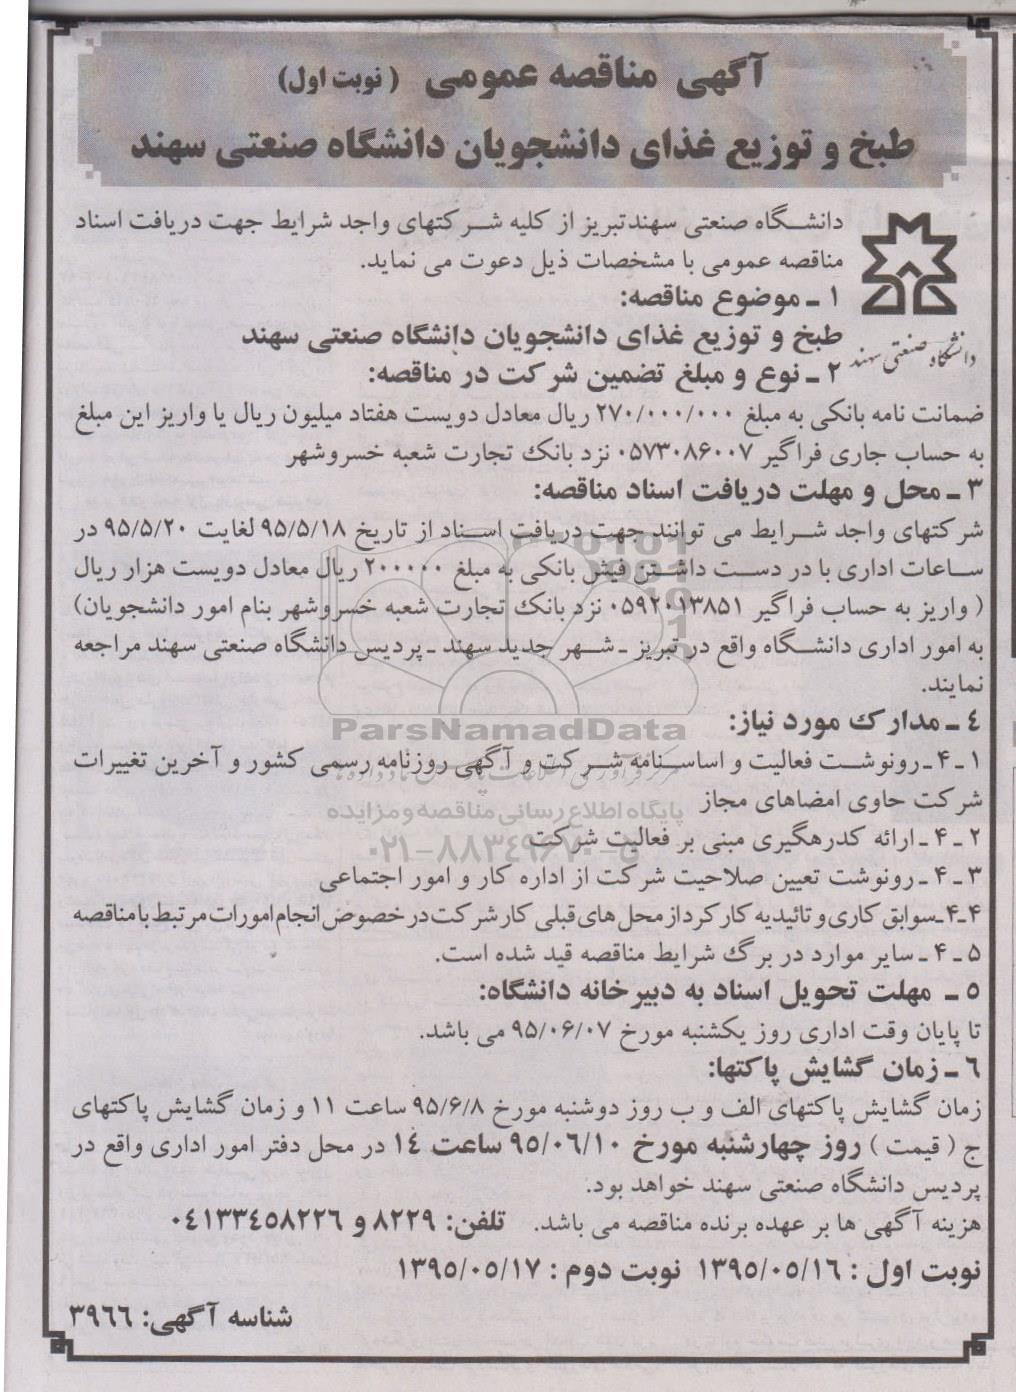 آگهی مناقصه عمومی ( نوبت اول)
طبخ و توزیع غذای دانشجویان دانشگاه صنعتی سهند
دانشگاه صنعتی سهندتبریز از کلیه شرکتهای واجد شرایط جهت دریافت اسناد
مناقصه عمومی با مشخصات ذیل دعوت می نماید.
۱ ـ موضوع مناقصه:
طبخ و توزیع غذای دانشجویان دانشگاه صنعتی سهند
دانشگاه صنعتی سهند
۲ ـ نوع و مبلغ تضمین شرکت در مناقصه:
ضمانت نامه بانکی به مبلغ ۲۷۰/۰۰۰/۰۰۰ ریال معادل دویست هفتاد میلیون ریال یا واریز این مبلغ
به حساب جاری فراگیر ۰۵۷۳۰۸۶۰۰۷ نزد بانک تجارت شعبه خسروشهر
۳ ـ محل و مهلت دریافت اسناد مناقصه:
شرکتهای واجد شرایط می توانند جهت دریافت اسناد از تاریخ ۹۵/۵/۱۸ لغایت ۹۵/۵/۲۰ در
ساعات اداری با در دست داشتن فیش بانکی به مبلغ ۲۰۰۰۰۰ ریال معادل دویست هزار ریال
( واریز به حساب فراگیر ۰۵۹۲۰۱۳۸۵۱ نزد بانک تجارت شعبه خسروشهر بنام امور دانشجویان)
به امور اداری دانشگاه واقع در تبریز ـ شهر جدید سهند ـ پردیس دانشگاه صنعتی سهند مراجعه
نمایند.
ParsNamadData
۴ ـ مدارک مورد نیاز:
۱ ـ ۴ ـ رونوشت فعالیت و اساسنامه شرکت و آگهی روزنامه رسمی کشور و آخرین تغییرات
شرکت حاوی امضاهای مجاز
پایگاه اطلاع رسانی مناقصه و مزایده
۲ ـ ۴ ـ ارائه کدرهگیری مبنی بر فعالیت شرکت
۰۲۱-۸۸۳۴۹۶۷۰-۵
۳ ـ ۴ ـ رونوشت تعیین صلاحیت شرکت از اداره کار و امور اجتماعی
۴ـ۴ـسوابق کاری و تائیدیه کارکرد از محل های قبلی کار شرکت در خصوص انجام امورات مرتبط با مناقصه
۵ ـ ۴ ـ سایر موارد در برگ شرایط مناقصه قید شده است.
۵ ـ مهلت تحویل اسناد به دبیرخانه دانشگاه:
تا پایان وقت اداری روز یکشنبه مورخ ۹۵/۰۶/۰۷ می باشد.
۶ ـ زمان گشایش پاکتها:
زمان گشایش پاکتهای الف و ب روز دوشنبه مورخ ۹۵/۶/۸ ساعت ۱۱ و زمان گشایش پاکتهای
ج ( قیمت ) روز چهارشنبه مورخ ۹۵/۰۶/۱۰ ساعت ۱۴ در محل دفتر امور اداری واقع در
پردیس دانشگاه صنعتی سهند خواهد بود.
هزینه آگهی ها بر عهده برنده مناقصه می باشد. تلفن: ۸۲۲۹ و ۰۴۱۳۳۴۵۸۲۲۶
نوبت اول : ۱۳۹۵/۰۵/۱۶ نوبت دوم : ۱۳۹۵/۰۵/۱۷
شناسه آگهی: ۳۹۶۶